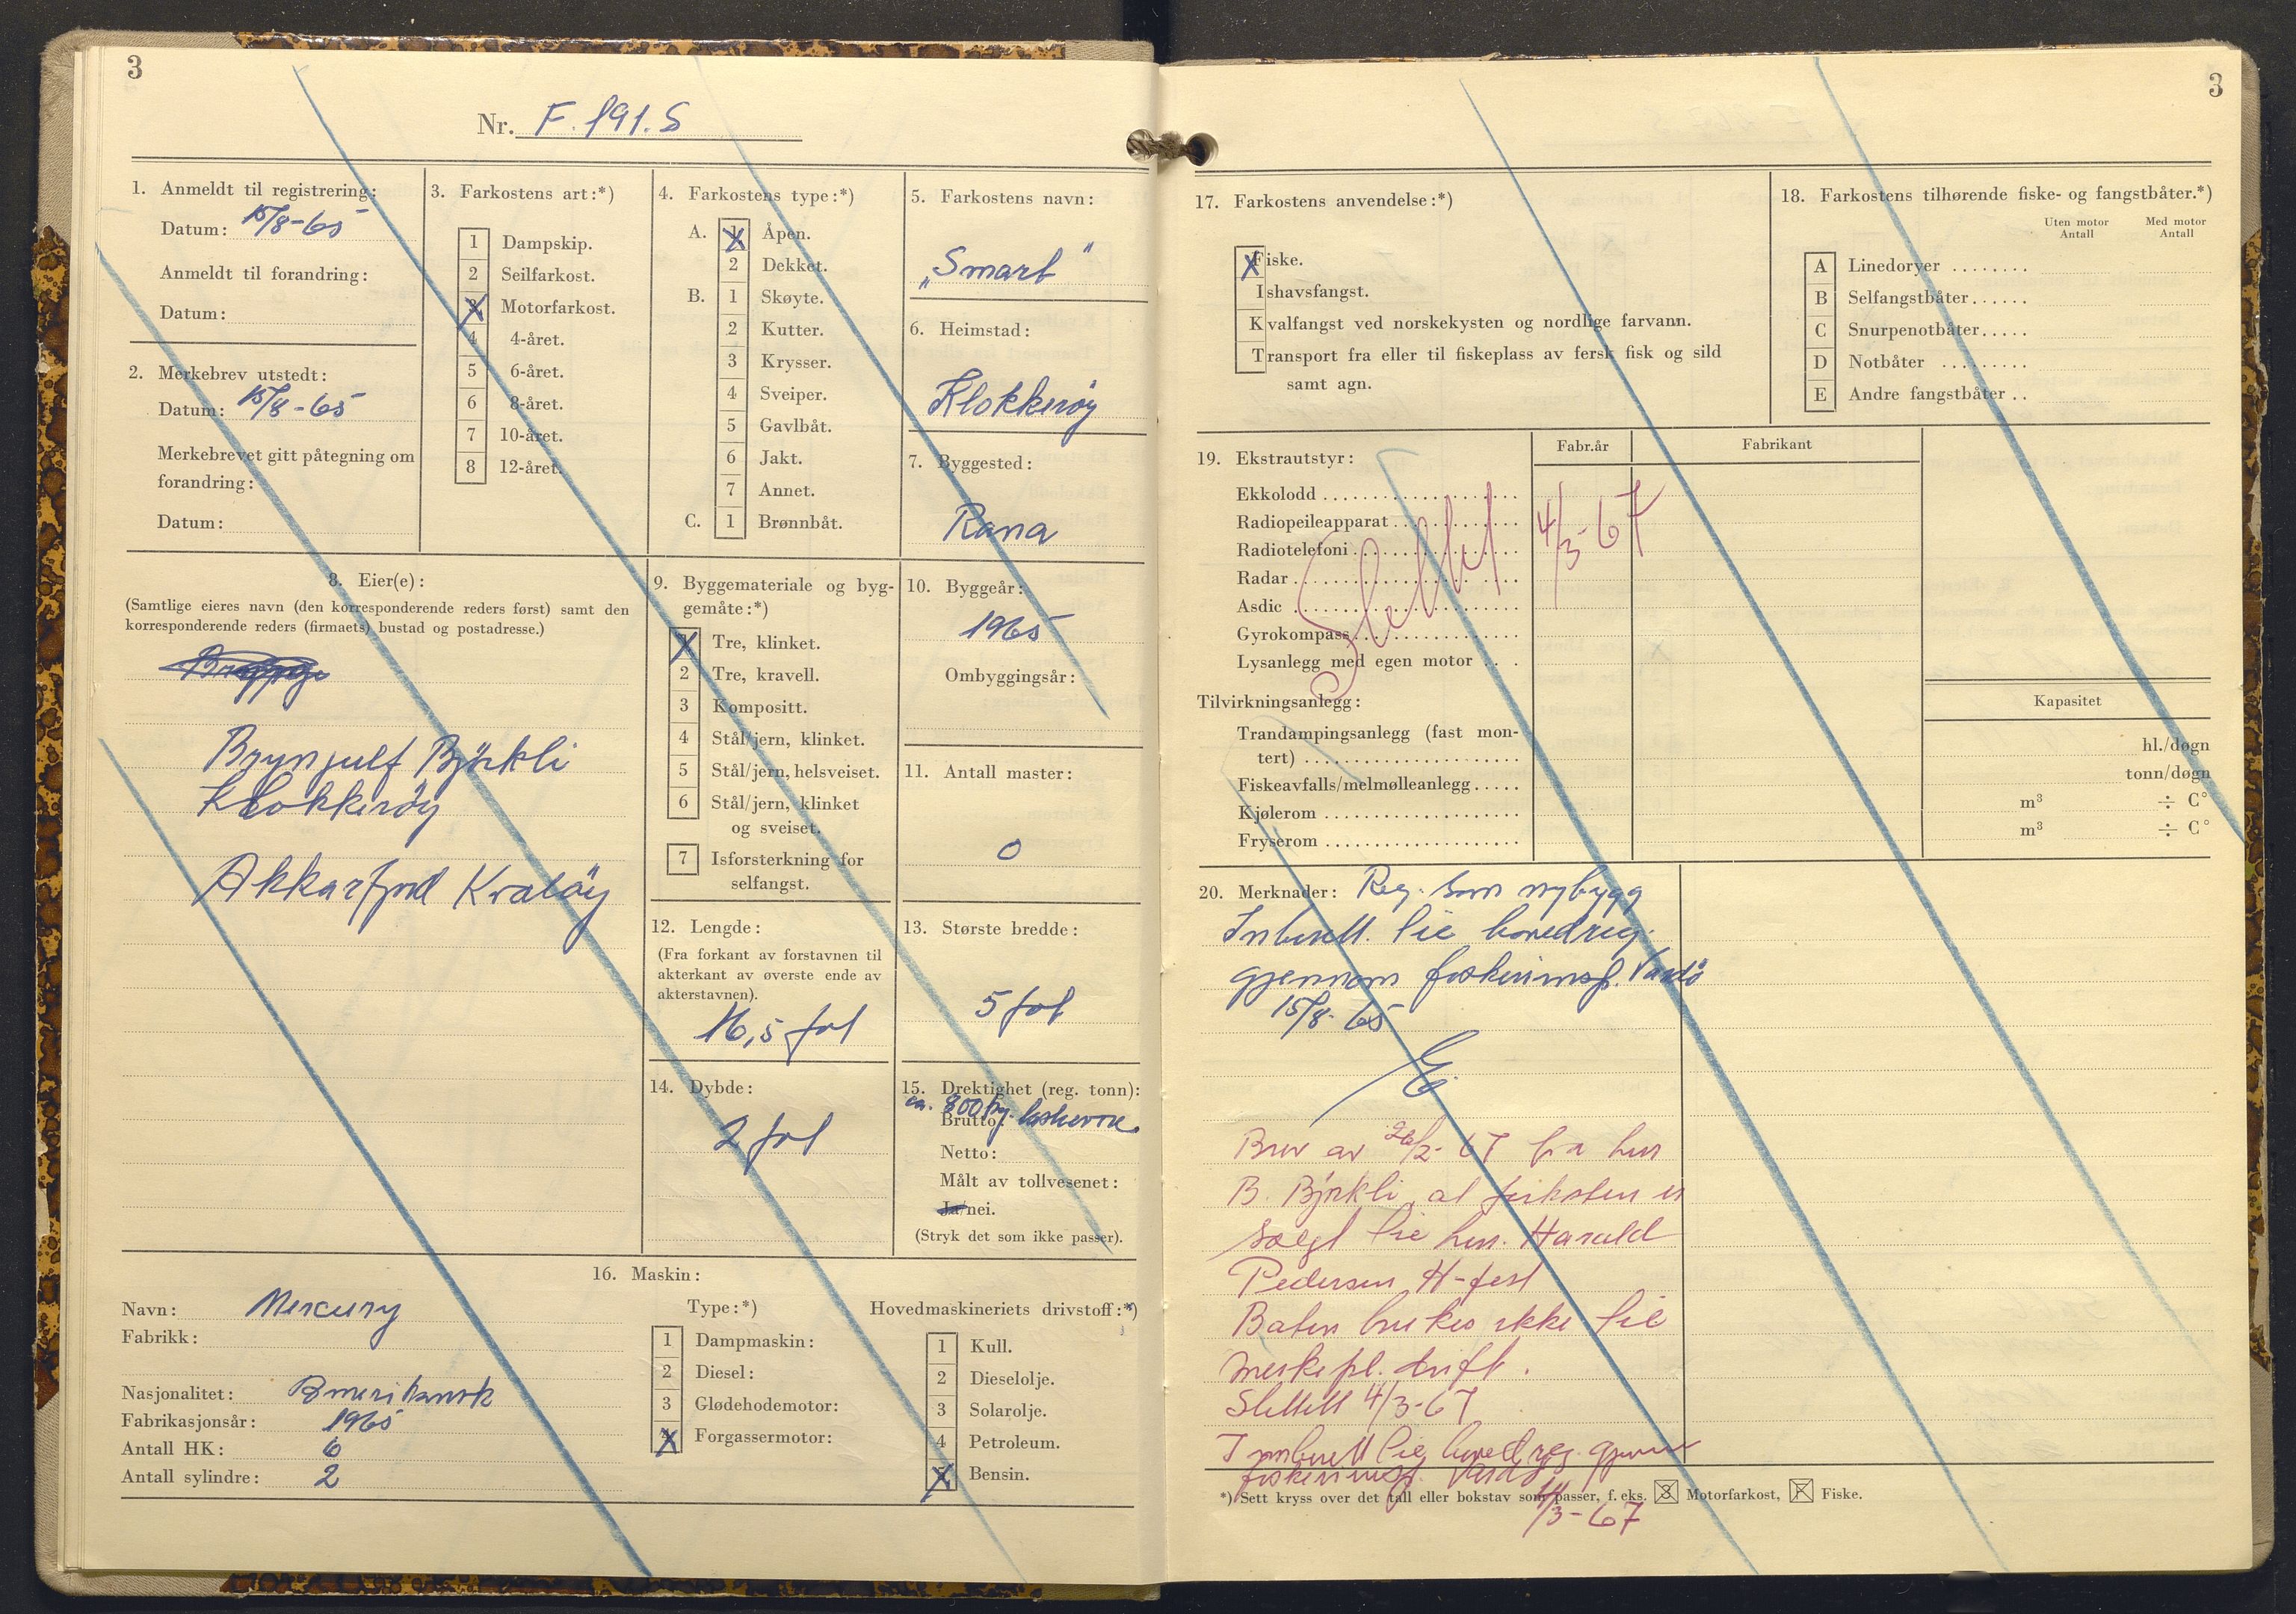 3
Nr. F. 191. S
1. Anmeldt til registrering:
Datum: 15/8-65
Anmeldt til forandring:
Datum:
2. Merkebrev utstedt:
Datum: 15/8-65
Merkebrevet gitt påtegning om
forandring:
Datum:
3. Farkostens art:*)
1 Dampskip.
2 Seilfarkost.
3 Motorfarkost.
4 4-året.
5 6-året.
6 8-året.
7 10-året.
8 12-året.
4. Farkostens type:*)
A. 1 Åpen.
2 Dekket.
B. 1 Skøyte.
2 Kutter.
3 Krysser.
4 Sveiper.
5 Gavlbåt.
6 Jakt.
7 Annet.
C. 1 Brønnbåt.
5. Farkostens navn:
„Smart"
6. Heimstad:
Klokkerøy
7. Byggested:
Rana
8. Eier(e):
(Samtlige eieres navn (den korresponderende reders først) samt den
korresponderende reders (firmaets) bustad og postadresse.)
Brynjulf Björkli
Klokkeröy
Akkarfjord Kvalöy
9. Byggemateriale og byg-
gemåte:*)
1 Tre, klinket.
2 Tre, kravell.
3 Kompositt.
4 Stål/jern, klinket.
5 Stål/jern, helsveiset.
6 Stål/jern, klinket
og sveiset.
7 Isforsterkning for
selfangst.
10. Byggeår:
1965
Ombyggingsår:
11. Antall master:
0
12. Lengde:
(Fra forkant av forstavnen til
akterkant av øverste ende av
akterstavnen).
16,5 fot
13. Største bredde:
5 fot
14. Dybde:
2 fot
15. Drektighet (reg. tonn):
ca. 800 kg.
Brutto:
Netto:
Målt av tollvesenet:
Ja/nei.
(Stryk det som ikke passer).
16. Maskin:
Navn: Mercury
Fabrikk:
Nasjonalitet: Amerikansk
Fabrikasjonsår: 1965
Antall HK: 6
Antall sylindre: 2
Type:*)
1 Dampmaskin:
2 Diesel:
3 Glødehodemotor:
4 Forgassermotor:
Hovedmaskineriets drivstoff:*)
1 Kull.
2 Dieselolje.
3 Solarolje.
4 Petroleum.
5 Bensin.
3
17. Farkostens anvendelse:*)
Fiske.
Ishavsfangst.
Kvalfangst ved norskekysten og nordlige farvann.
Transport fra eller til fiskeplass av fersk fisk og sild
samt agn.
18. Farkostens tilhørende fiske- og fangstbåter.*)
Uten motor
Antall
Med motor
Antall
A Linedoryer ........
B Selfangstbåter......
C Snurpenotbåter.....
D Notbåter .........
E Andre fangstbåter ..
19. Ekstrautstyr:
Fabr.år
Fabrikant
Ekkolodd
Radiopeileapparat
Radiotelefoni
Radar
Asdic
Gyrokompass
Lysanlegg med egen motor
Slettet 4/3-67
Tilvirkningsanlegg:
Kapasitet
Trandampingsanlegg (fast mon-
tert)
hl./døgn
Fiskeavfalls/melmølleanlegg.....
tonn/døgn
Kjølerom
m³ ÷ C°
Fryserom
m³ ÷ C°
20. Merknader: Reg. som nybygg
Innberett. til hovedreg.
gjennom fiskeriinsp. Vardö
15/8-65
E.
Brev av 26/2-67 fra herr
B. Björkli, at farkosten er
solgt til herr. Harald
Pedersen, H-fest
Båten brukes ikke til
merkepl. drift.
Slettet 4/3-67
Innberett til hovedreg. gjennom
fiskeriinsp. Vardö
4/3-67
*) Sett kryss over det tall eller bokstav som passer, f. eks. 3 Motorfarkost, F Fiske.